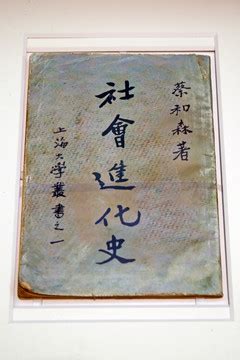 蔡和森著
社會進化史
上海大学叢書之一